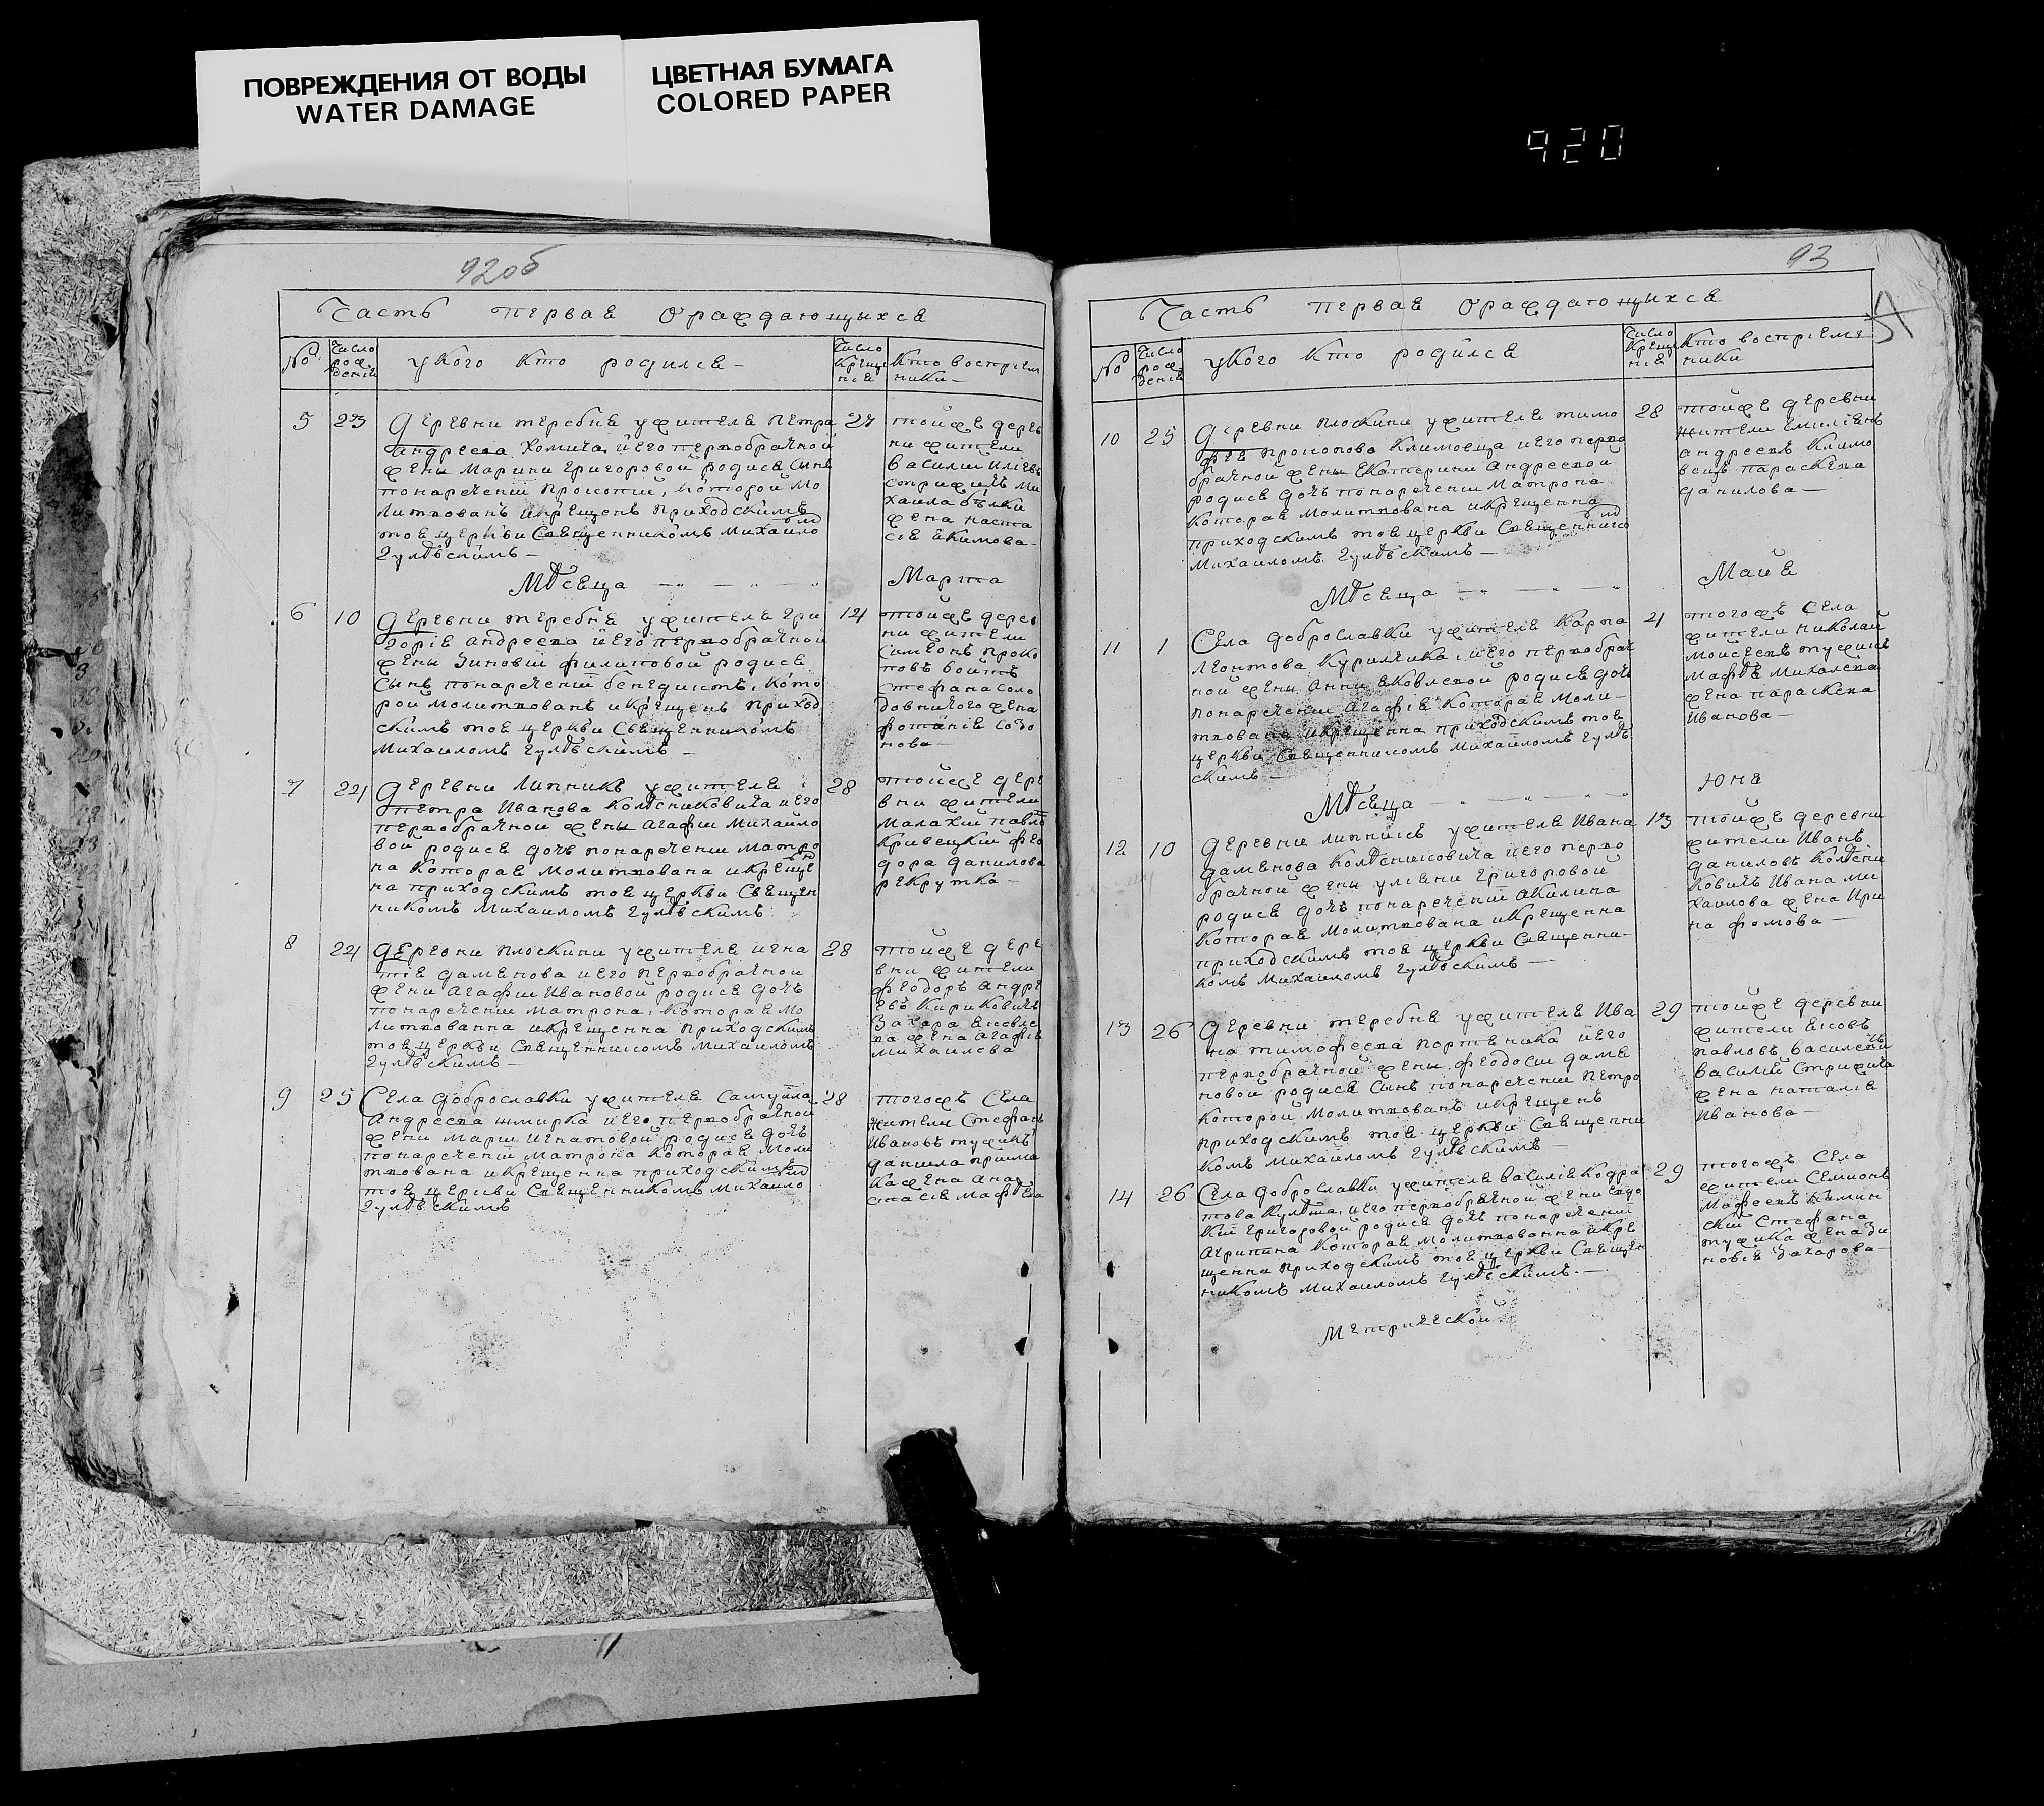 ПОВРЕЖДЕНИЯ ОТ ВОДЫ
WATER DAMAGE
ЦВЕТНАЯ БУМАГА
COLORED PAPER
920
92об
Часть первая ораждающихся
№ Число рождения
у кого кто родился
Число крещения
Кто воспріемники
5 23 Деревни теребня ужителя Петра 27
Андреева Хомича, и его первобрачной
жены Марини Григоровой родися сынъ
понаречении Прокопий, который мо
литвованъ икрещенъ приходскимъ
тоя церкви Священникомъ Михаило
Гулѣвскимъ
тойже дерев
ни жители
Василий Иліевъ
Стрижичъ Ми
хаила бѣлки
жена Наста
сія Якимова
Мѣсяца Марта
6 10 Деревни теребня ужителя Гри 14
горія Андреева и его первобрачной
жены Зиновіи Филиповой родися
сынъ понаречении Бенедиктъ, кото
рой молитвованъ икрещенъ приход
скимъ тоя церкви Священникомъ
Михаиломъ Гулѣвскимъ
тойже дерев
ни жители
Симеонъ Проко
повъ Войтъ
Стефана Соло
довничого жена
Фотанія Созо
нова
7 24 Деревни Липникъ ужителя 28
Петра Иванова Колѣсниковича и его
первобрачной жены Агафіи Михайло
вой родися дочъ понаречении Матро
на которая молитвована икреще
на приходскимъ тоя церкви Священ
никомъ Михаиломъ Гулѣвскимъ
тойже дере
вни жители
Малахий Павло
Кривецкий Фео
дора Данилова
рекрутка
8 24 Деревни Плоскини ужителя Игна 28
тія Даміянова и его первобрачной
жени Агафіи Ивановой родися дочъ
понаречении Матрона, которая мо
литвованна икрещенна приходскимъ
тоя церкви Священникомъ Михаиломъ
Гулѣвскимъ
тойже дере
вни жители
Феодоръ Андре
евъ Кириковичъ
Захара Яковле
ва жена Агафія
Михаилова
9 25 Села Доброславки ужителя Самуйла 28
Андреева Шмирка и его первобрачной
жени Марии Игнатовой родися дочъ
понаречении Матрона которая моли
твована икрещенна приходскимъ
тоя церкви Священникомъ Михаило
Гулѣвскимъ
тогожъ Села
жители Стефанъ
Ивановъ Тужикъ
Данила Прийма
ка жена Ана
стасія Мафѣева
93
Часть первая ораждающихся
№ Число рождения
у кого кто родился
Число крещения
Кто воспріемники
10 25 Деревни Плоскини ужителя Тимо 28
фея Прокопова Климовца и его перво
брачной жены Екатерини Андреевой
родися дочъ понаречении Матрона
которая молитвована икрещенна
приходскимъ тоя церкви Священнико
Михаиломъ Гулѣвскимъ
тойже деревни
жители Емиліянъ
Андреевъ Климо
вецъ Параскева
Данилова
Мѣсяца Майя
11 1 Села Доброславки ужителя Карпа 4
Леонтова Курилчика, и его первобрач
ной жены Анни Яковлевой родися дочъ
понаречении Агафія которая моли
твована икрещенна приходскимъ тоя
церкви Священникомъ Михаиломъ Гулѣ
скимъ
тогожъ Села
жители Николай
Моисеевъ Тужикъ
Мафѣя Михалева
жена Параскева
Иванова
Мѣсяца Юня
12 10 Деревни Липникъ ужителя Ивана 13
Даміянова Колѣсниковича и его перво
брачной жены Уліяни Григоровой
родися дочъ понаречении Акилина
которая молитвована икрещенна
приходскимъ тоя церкви Священни
комъ Михаиломъ Гулѣвскимъ
тойже деревни
жители Иванъ
Даниловъ Колѣсни
ковичъ Ивана Ми
хаилова жена Ири
на Фомова
13 26 Деревни теребня ужителя Ива 29
на Тимофеева Портненика и его
первобрачной жены Феодосіи Дамя
новой родися сынъ понаречении Петро
которой молитвованъ икрещенъ
приходскимъ тоя церкви Священни
комъ Михаиломъ Гулѣвскимъ
тойже деревни
жители Яковъ
Павловъ Василевич
Василий Стрижича
жена Наталія
Иванова
14 26 Села Доброславки ужителя Василія Кодра 29
това Кулѣша, и его первобрачной жени Евдо
кіи Григоровой родися дочъ понаречении
Агрипина которая молитвованна икре
щенна приходскимъ тоя церкви Священ
никомъ Михаиломъ Гулѣвскимъ
тогожъ Села
жители Семионъ
Мафеевъ Камин
скій Стефана
Тужика жена Зи
новія Захарова
Метрической